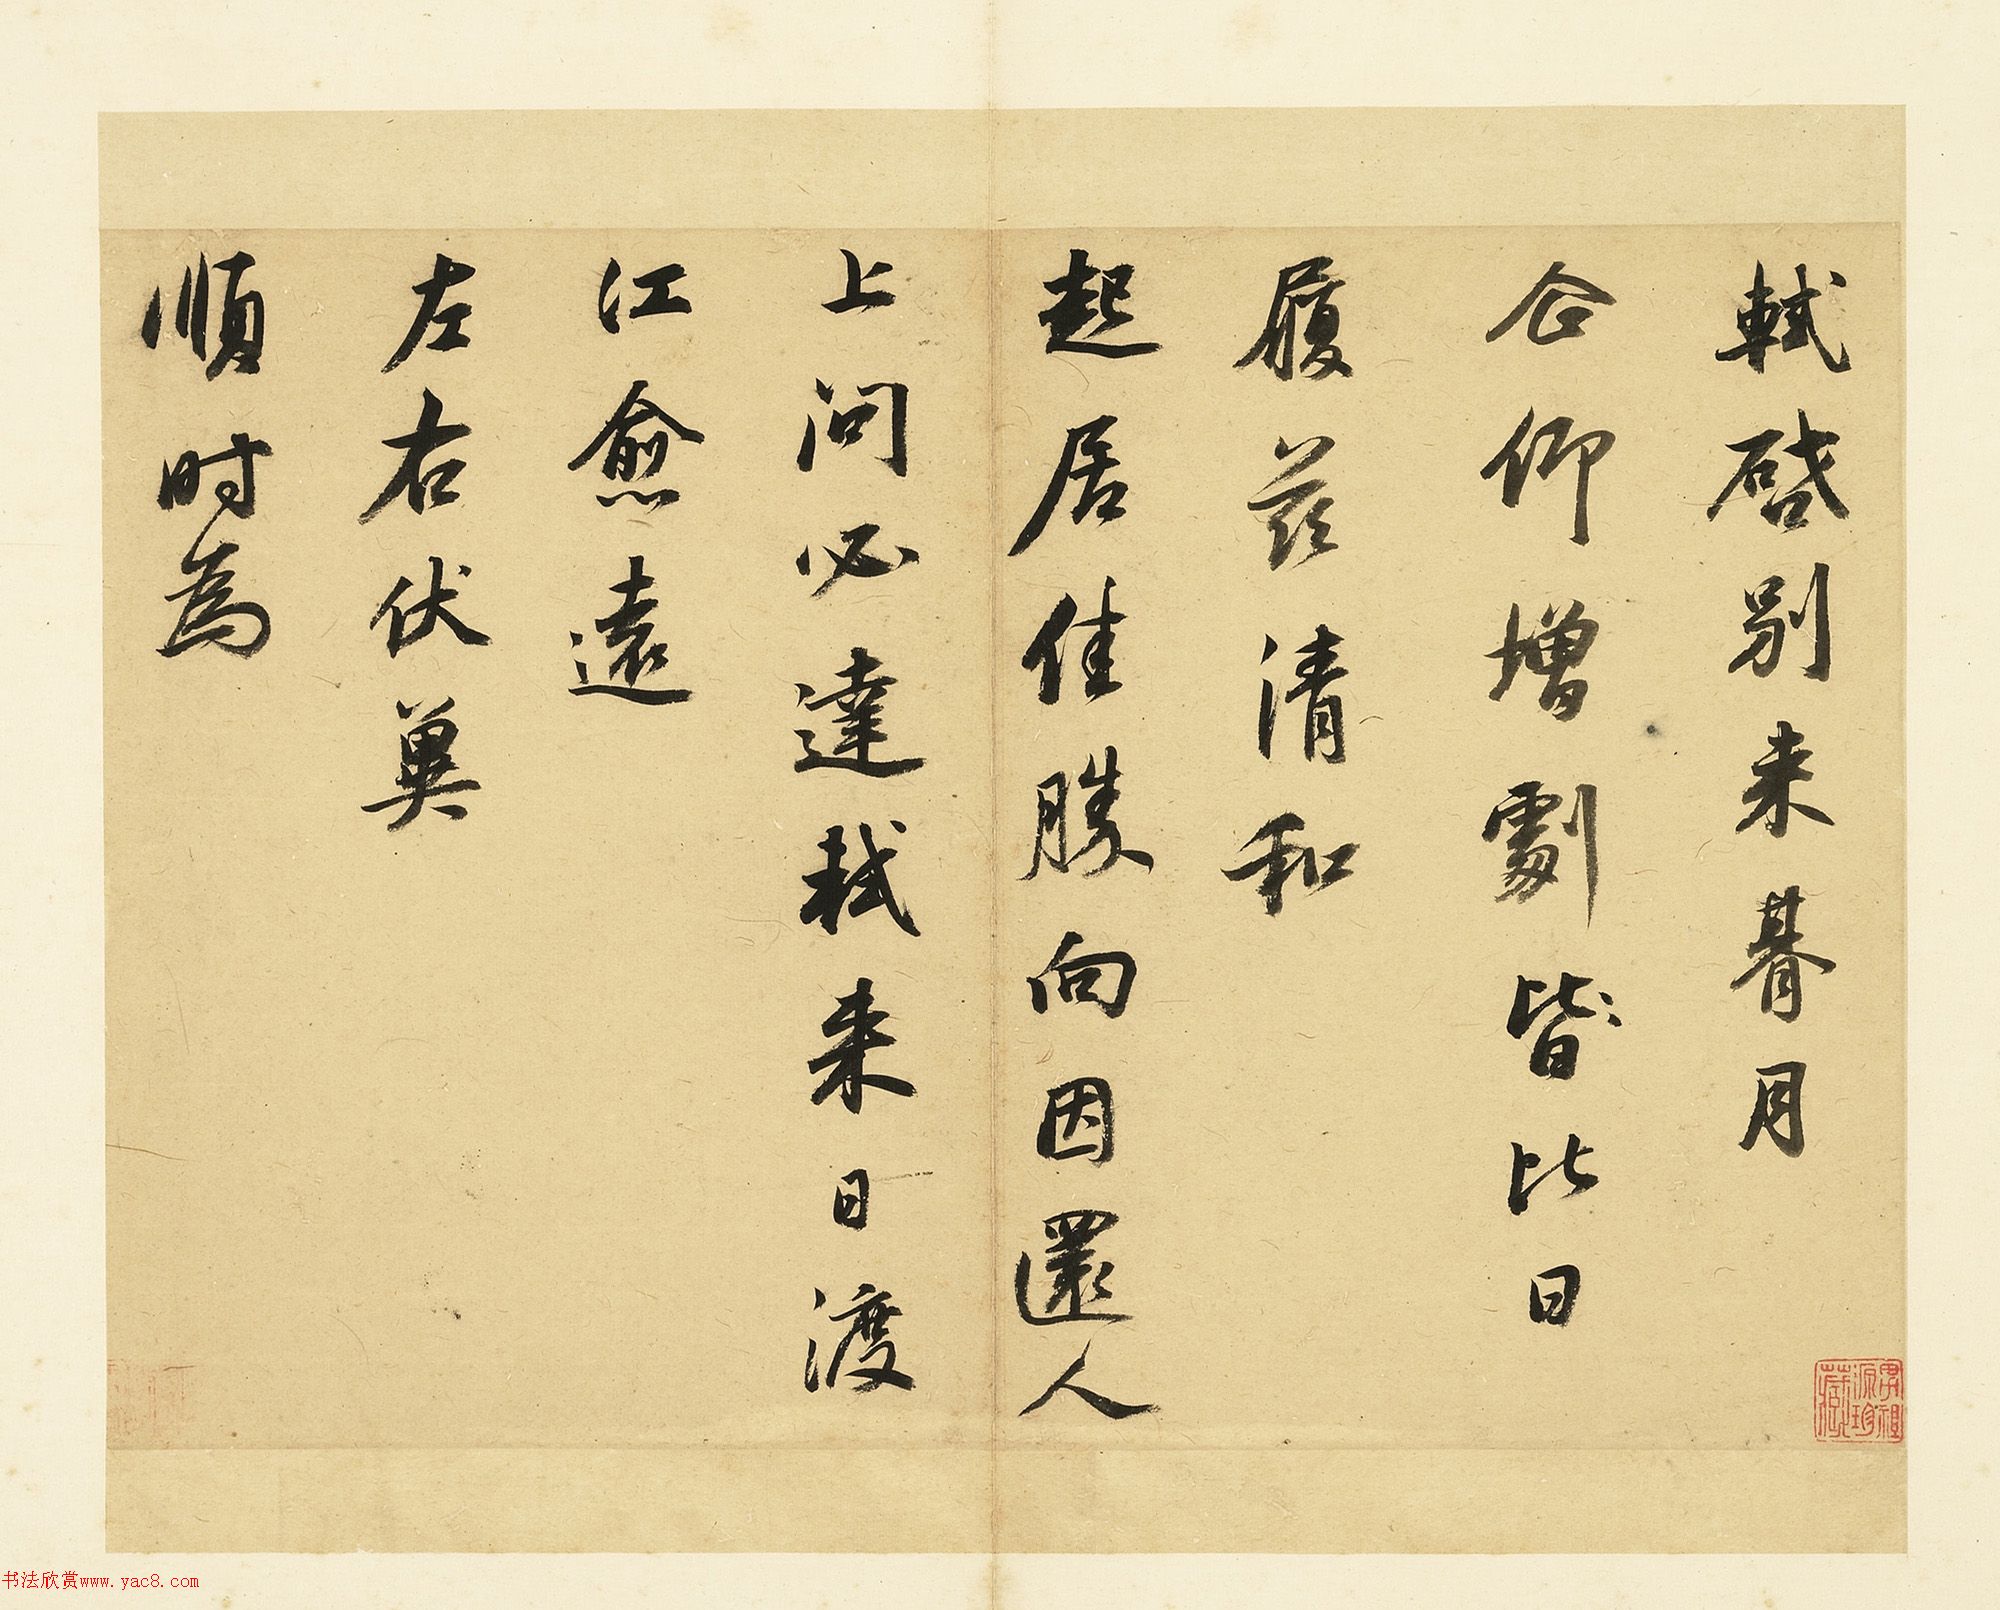 軾啓別来朞月
企仰增劇皆比日
履茲清和
起居佳勝向因還人
上問必達軾来日渡
江愈遠
左右伏冀
順時為
书法欣赏www.yac8.com